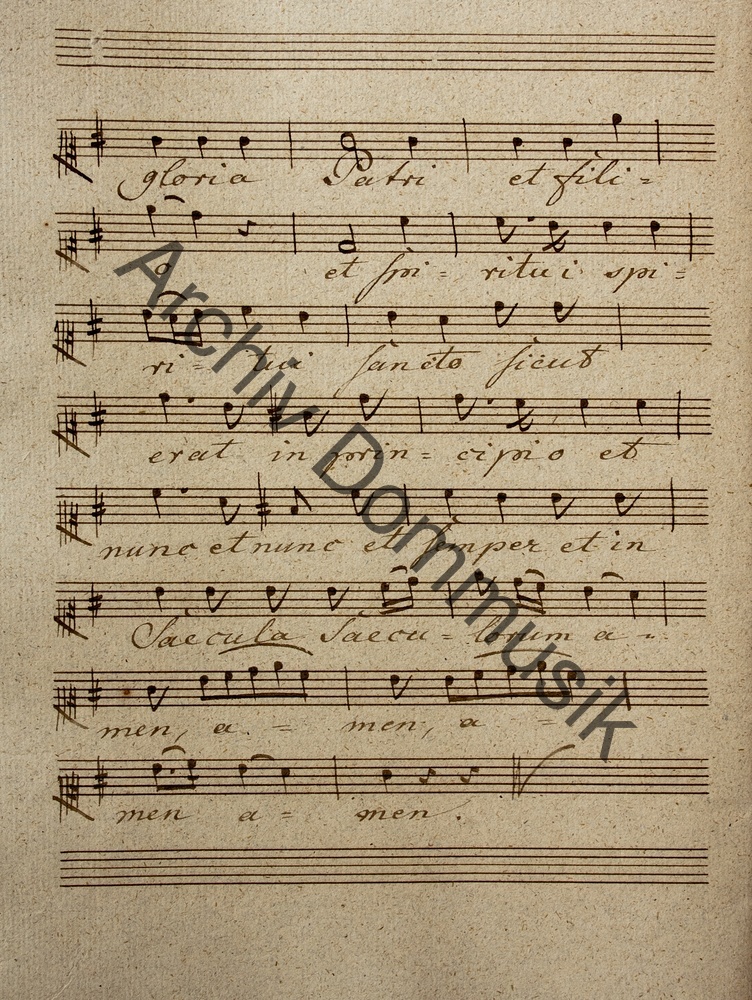 gloria Patri et fili =
o et spi = ritui spi =
ri = tui sancto sicut
erat in prin = cipio et
nunc et nunc et semper et in
Saecula Saecu = lorum a =
men, a = men, a =
men a = men.
Archiv Dommusik